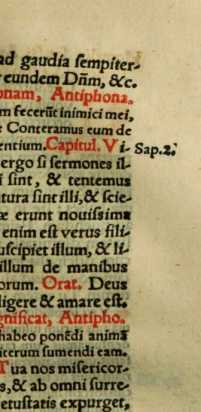 ad gaudia sempiter-
eundem Dñm, &c.
onam, Antiphona.
m fecerũt inimici mei,
Conteramus eum de
entium. Capitul. Vi- Sap.2.
ergo si sermones il-
i sint, & tentemus
tura sint illi, & scie-
æ erunt nouissima
enim est verus fili-
uscipiet illum, & li-
illum de manibus
orum. Orat. Deus
ligere & amare est.
gnificat, Antipho.
habeo ponẽdi animã
iterum sumendi eam.
Tua nos misericor-
s, & ab omni surre-
etustatis expurget,